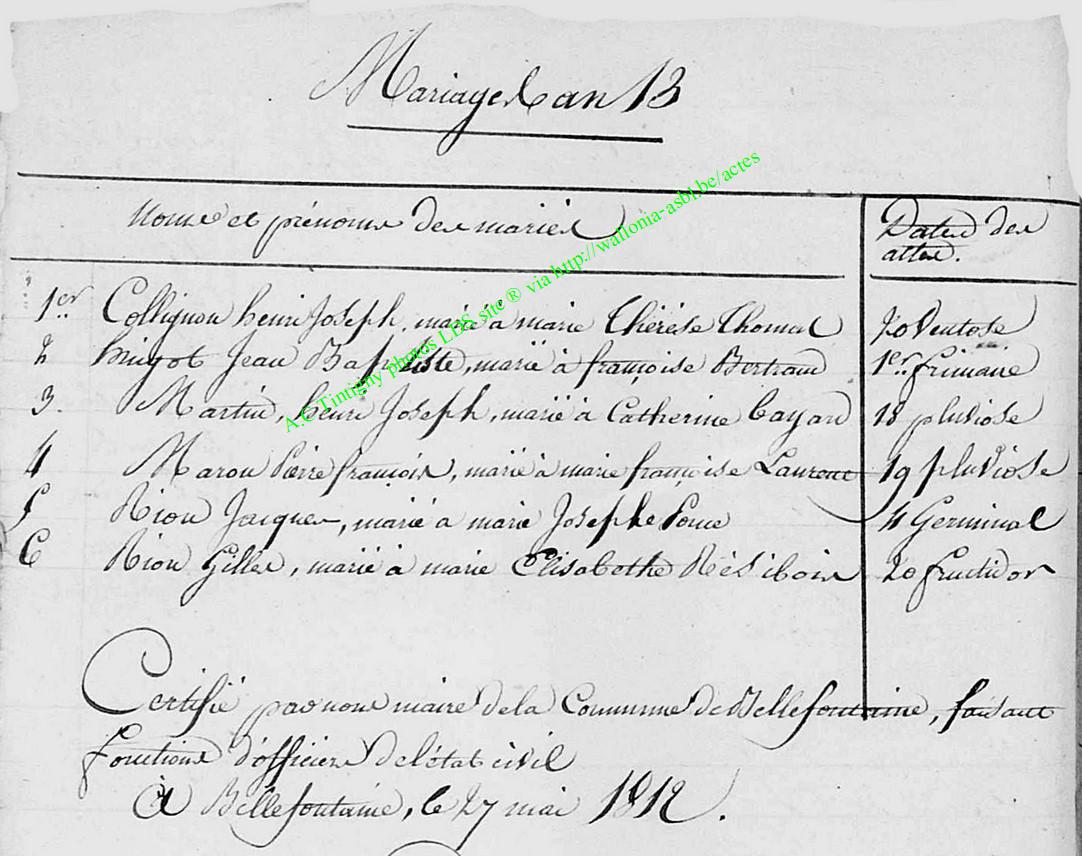 Mariages l'an 13
Noms et prénoms des mariés
Dates des
actes.
1er Collignon henri Joseph, marié à marie Thérèse Thomas 20 Ventose
2 Jean Baptiste, marié à françoise Bertrand 1er frimaire
3. Martin, henri Joseph, marié à Catherine Cayard 18 pluviose
4 Maron Pierre françois, marié à marie françoise Laurent 19 pluviose
5 Rion Jacques, marié à marie Josephe Ponce 4 Germinal
6 Rion Gilles, marié à marie Elisabethe Résibois 20 fructidor
Certifié par nous maire de la Commune de Bellefontaine, faisant
fonctions d'officiers de l'état civil
à Bellefontaine, le 27 mai 1812.
A.C Tintigny photos LDS site ® via http://wallonia-asbl.be/actes